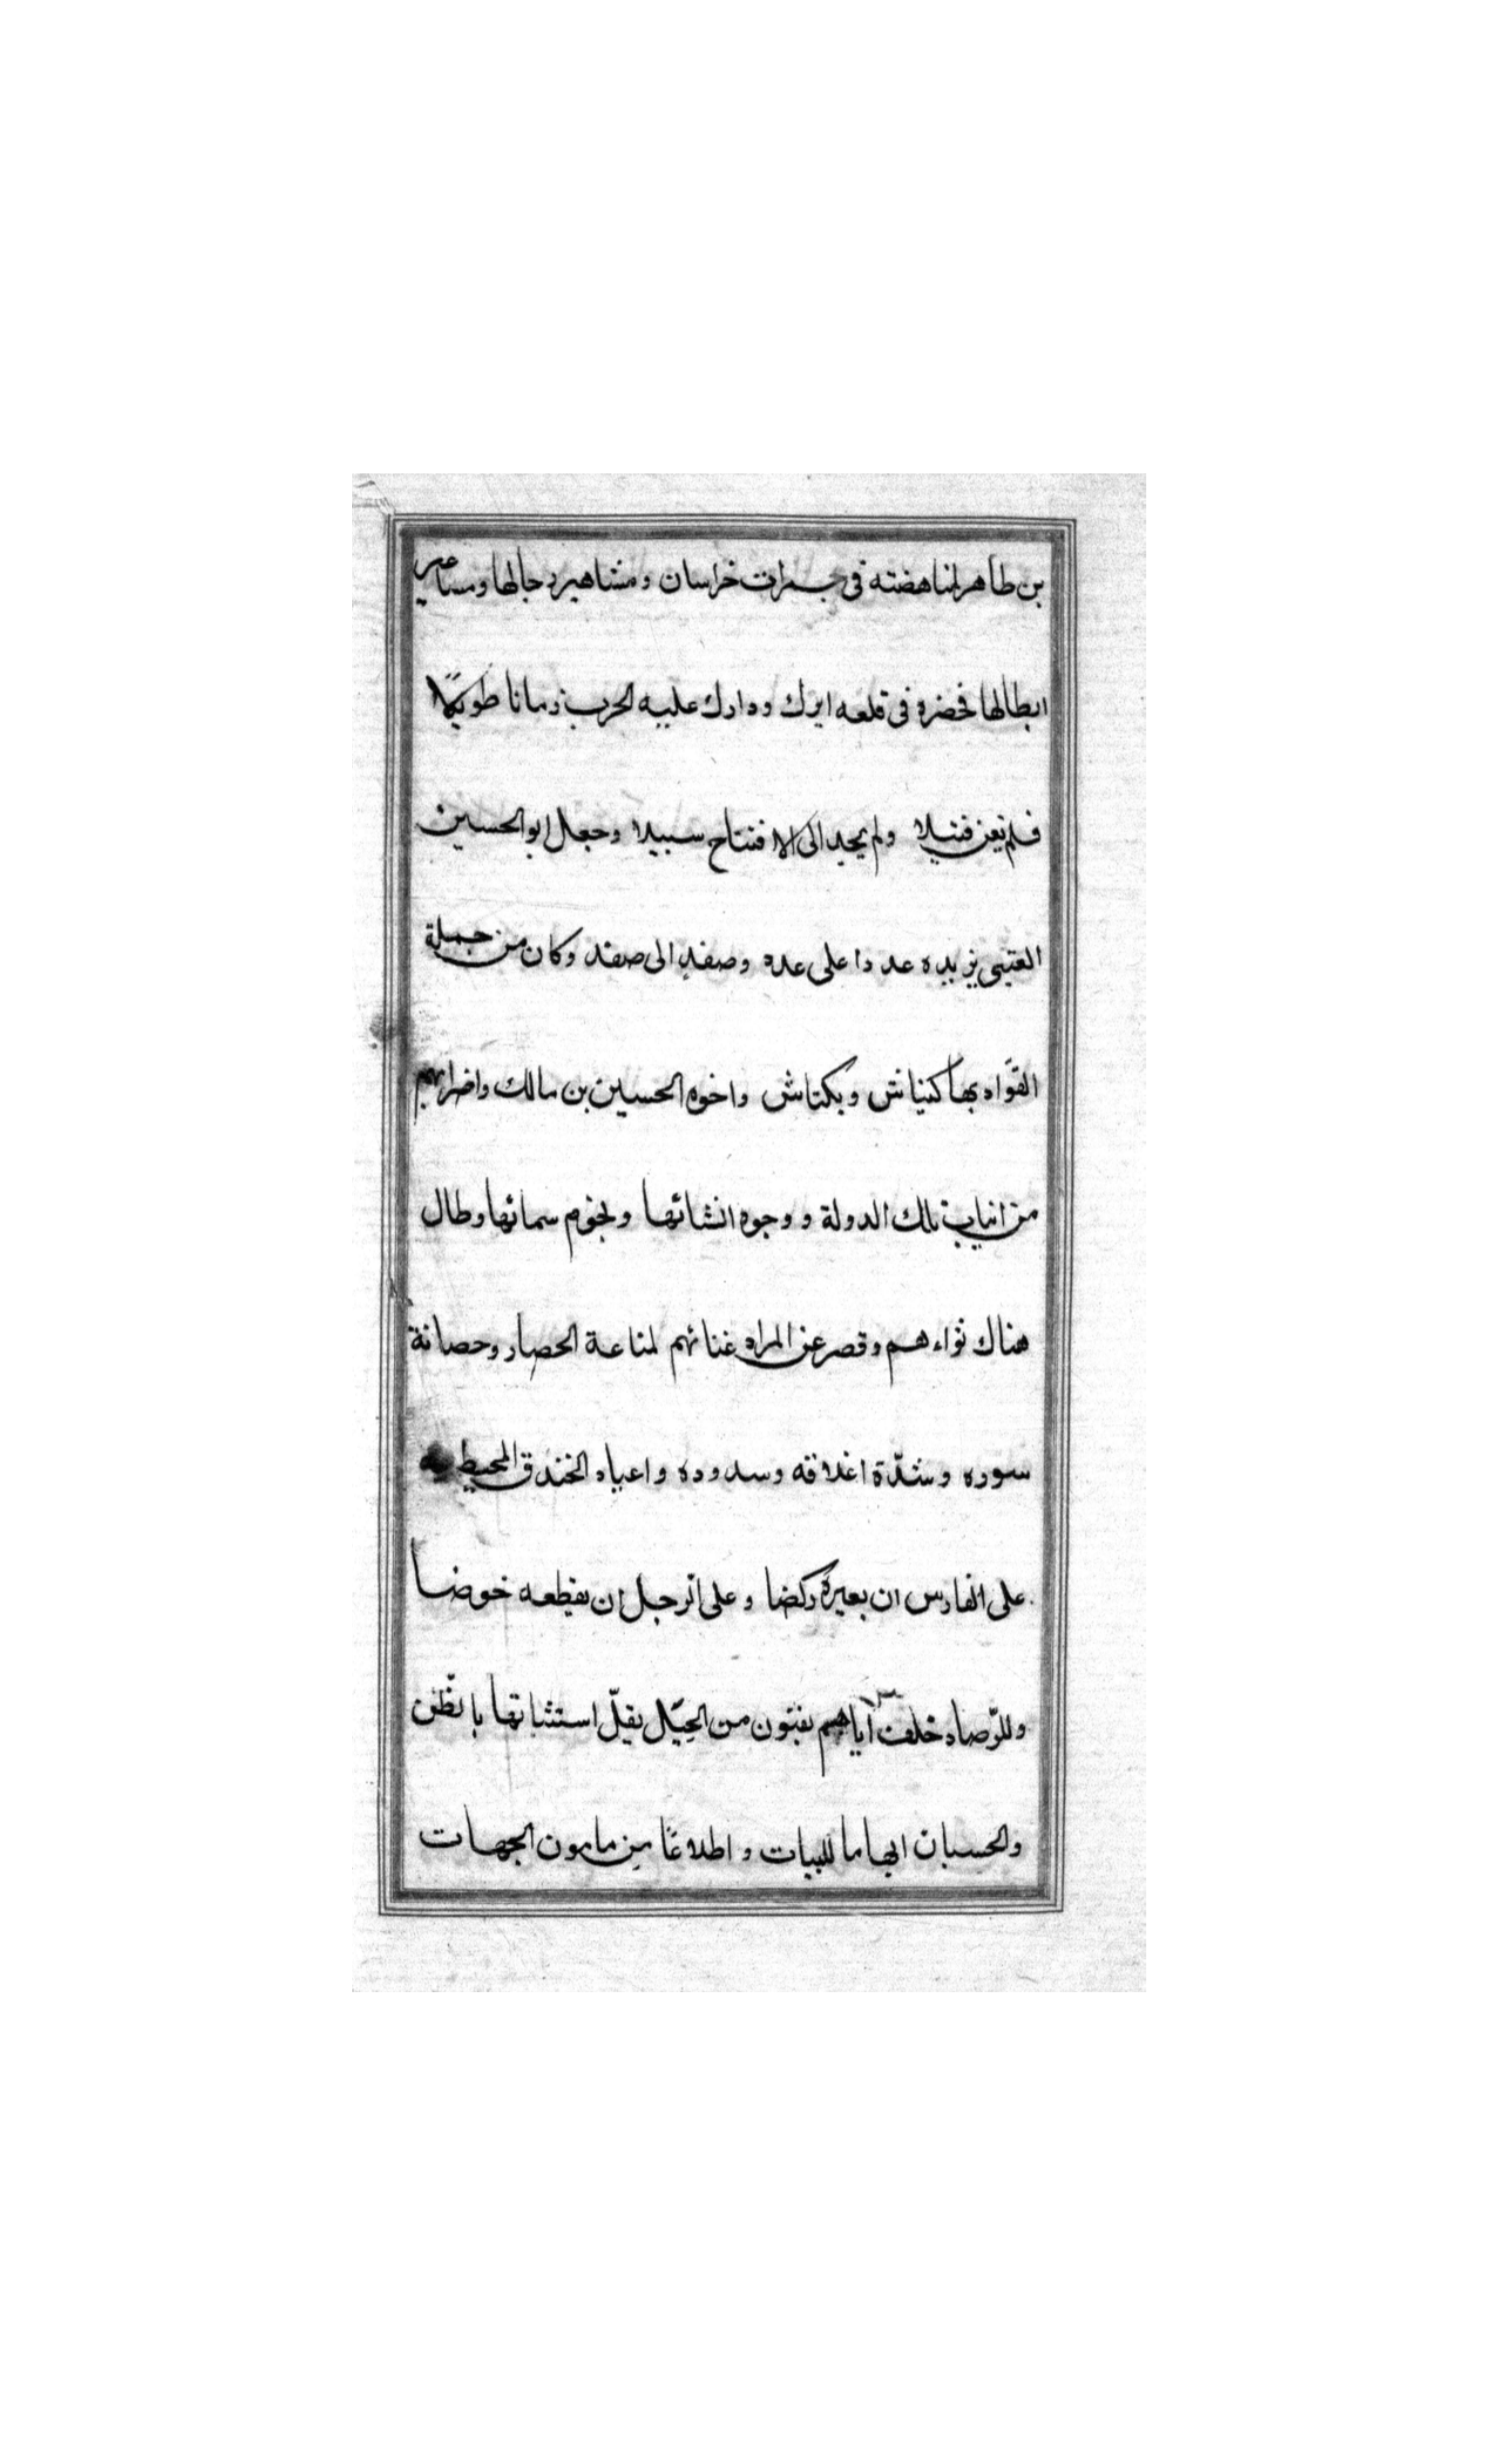 بن طاهر لمناهضته فى جمرات خراسان ومشاهير رجالها ومساعير
ابطالها فحضره فى قلعه ارك ودارك عليه الحرب زمانا طويلًا
فلم يغن فتيلا ولم يجد الى الافتتاح سبيلا وجعل ابو الحسين
العتبى يزيده عددا على عدد وصفد الى صفد وكان من جملة
القوّاد بها كنياتش وبكتاش واخوه الحسين بن مالك واضرابهم
من انياب تلك الدولة ووجوه انشائها ونجوم سمائها وطال
هناك ثواءهم وقصر عن المراد غنائهم لمناعة الحصار وحصانة
سوره وشدّة اغلاقه وسدوده واعياد الخندق المحيط به
على الفارس ان يعيره ركضا وعلى الرجل ان يقطعه خوضا
وللرّصاد خلف اياهم بفتون من الحِيَل يقلّ استثباتها بالظّن
والحسبان ايهاما للبيات واطلاعًا من مامون الجهات